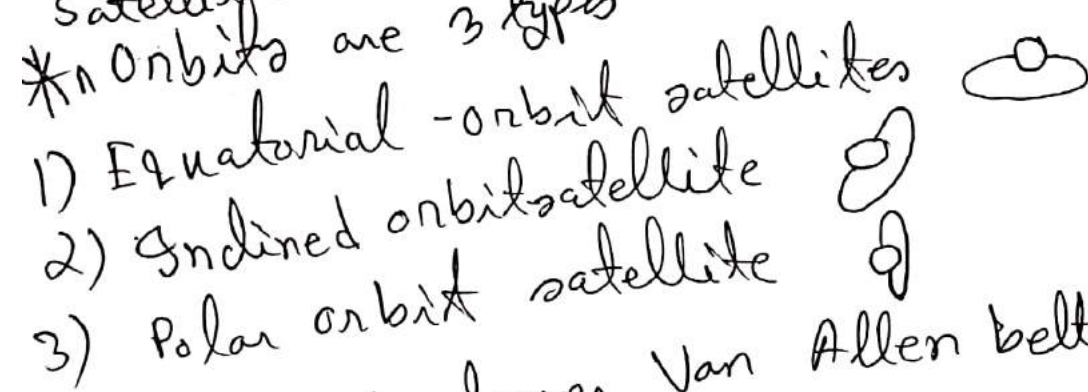 * Orbits are 3 types
1) Equatorial -orbit satellites
2) Inclined orbitsatellite
3) Polar orbit satellite
Van Allen belt